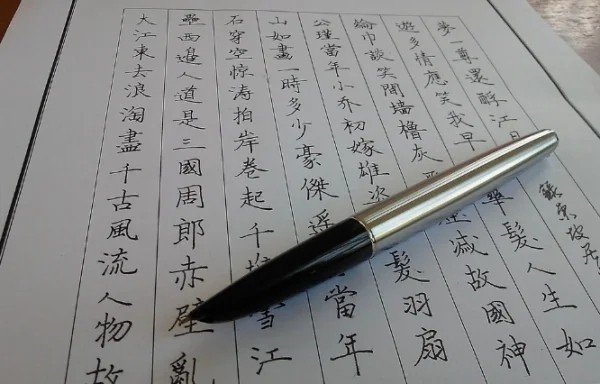 大江東去浪淘盡千古風流人物故
壘西邊人道是三國周郎赤壁亂
石穿空惊涛拍岸卷起千雪江
山如畫一時多少豪傑遥當年
公瑾當年小乔初嫁雄髮羽扇
綸巾談笑間墻櫓灰滅故國神
遊多情應笑我早華髮人生如
夢一尊還酹江